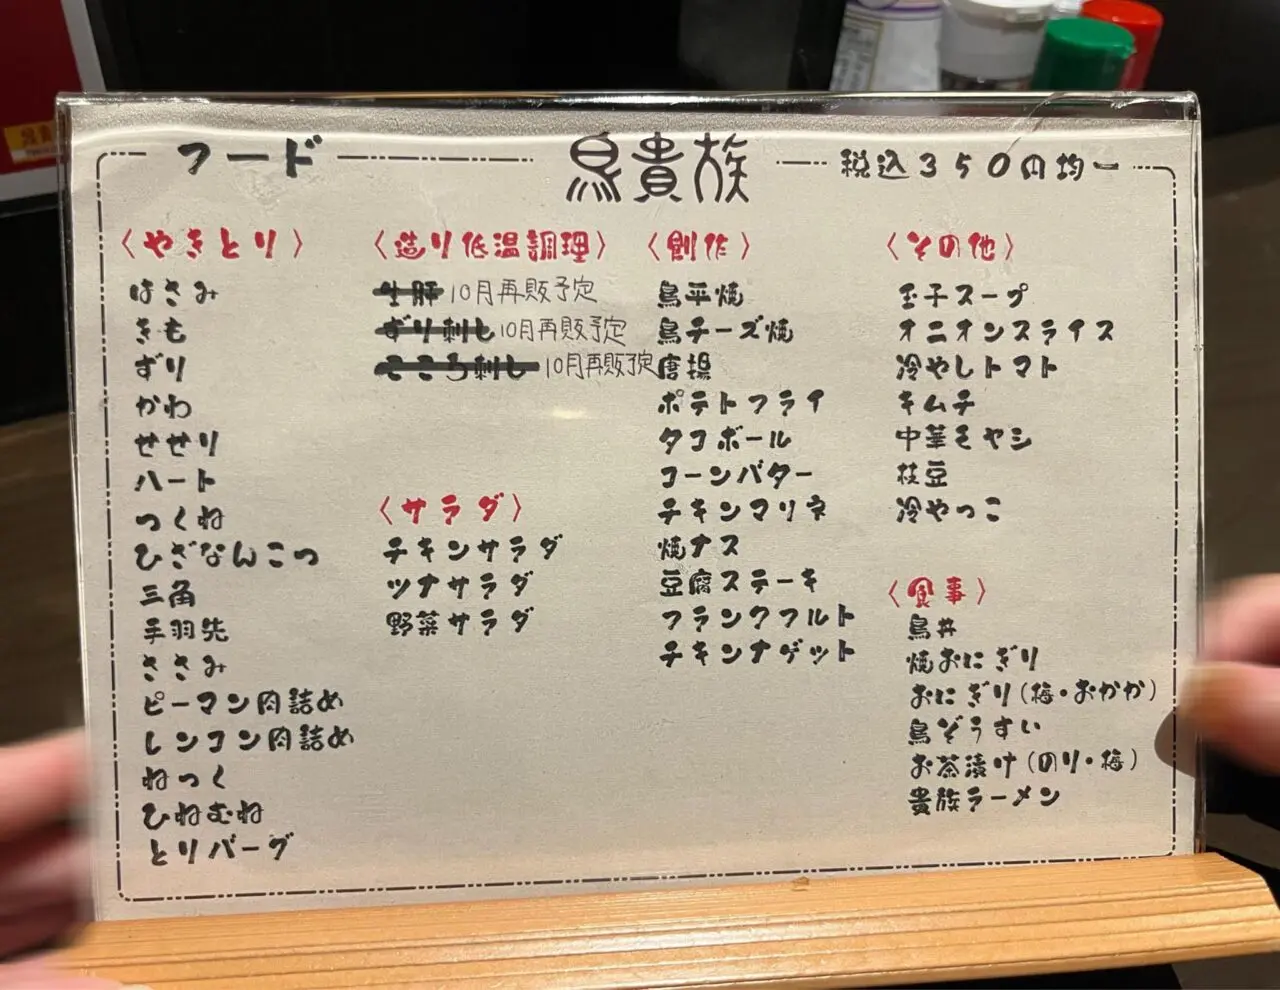 フード 鳥貴族 税込350円均一
〈やきとり〉
はさみ
きも
ずり
かわ
せせり
ハート
つくね
ひざなんこつ
三角
手羽先
ささみ
ピーマン肉詰め
レンコン肉詰め
ねっく
ひねむね
とりバーグ
〈造り低温調理〉
生肝 10月再販予定
ずり刺し 10月再販予定
こころ刺し 10月再販予定
〈サラダ〉
チキンサラダ
ツナサラダ
野菜サラダ
〈創作〉
鳥平焼
鳥チーズ焼
唐揚
ポテトフライ
タコボール
コーンバター
チキンマリネ
焼ナス
豆腐ステーキ
フランクフルト
チキンナゲット
〈その他〉
玉子スープ
オニオンスライス
冷やしトマト
キムチ
中華モヤシ
枝豆
冷やっこ
〈食事〉
鳥丼
焼おにぎり
おにぎり(梅・おかか)
鳥ぞうすい
お茶漬け(のり・梅)
貴族ラーメン